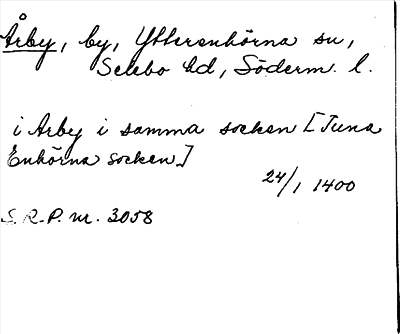 Årby, by, Ytterenhörna sn,
Selebo hd, Söderm. l.
i Arby i samma socken [Tuna
Enhörna socken]
24/1 1400
S.R.P. nr. 3058